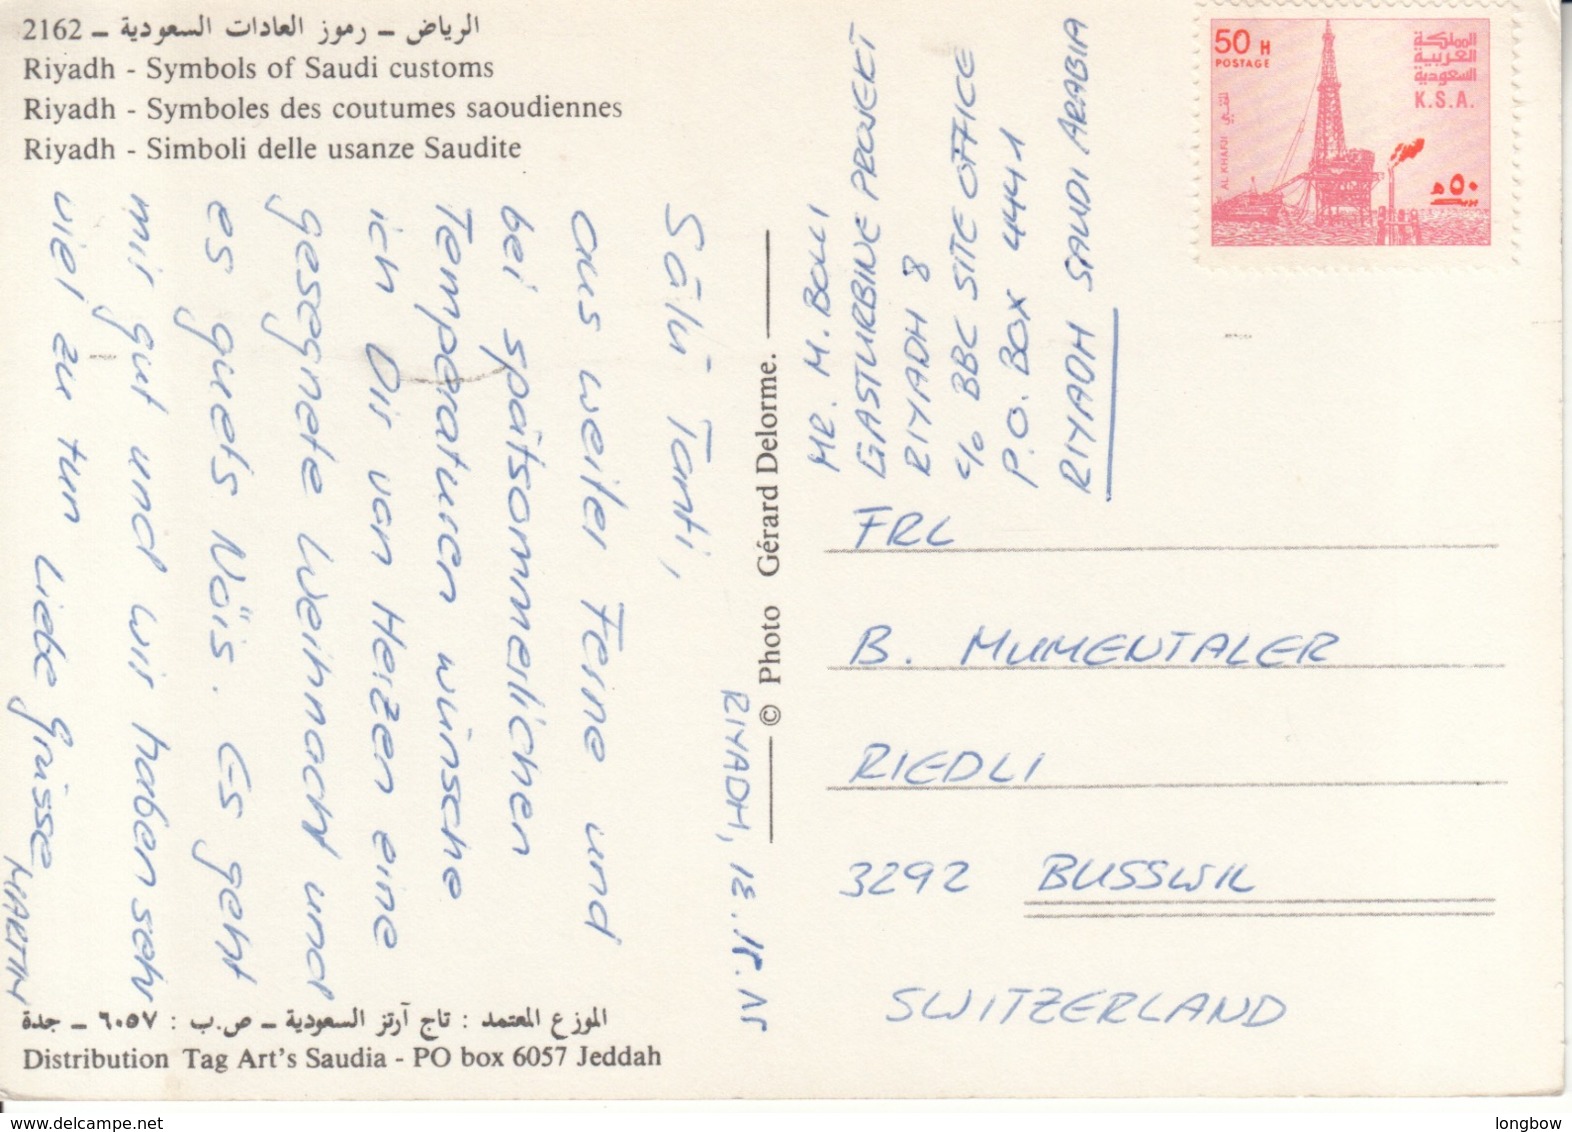 2162 – الرياض – رموز العادات السعودية
Riyadh - Symbols of Saudi customs
Riyadh - Symboles des coutumes saoudiennes
Riyadh - Simboli delle usanze Saudite
RIYADH,
Sälü Tanti,
aus weiter Ferne und
bei spätsommerlichen
Temperaturen wünsche
ich Dir von Herzen eine
gesegnete Weihnacht und
es guets Nöis. Es geht
mir gut und wir haben sehr
viel zu tun
Liebe Grüsse
MARTIN
الموزع المعتمد : تاج آرتز السعودية – ص.ب : ٦٠٥٧ – جدة
Distribution Tag Art's Saudia - PO box 6057 Jeddah
© Photo Gérard Delorme.
MR. M. BOLLI
GASTURBINE PROJEKT
RIYADH 8
c/o BBC SITE OFFICE
P.O. BOX 4441
RIYADH SAUDI ARABIA
50 H
POSTAGE
المملكة
العربية
السعودية
K.S.A.
الخفجي
AL KHAFJI
٥٠ ه
بريد
FRL
B. MUMENTALER
RIEDLI
3292 BUSSWIL
SWITZERLAND
longbow